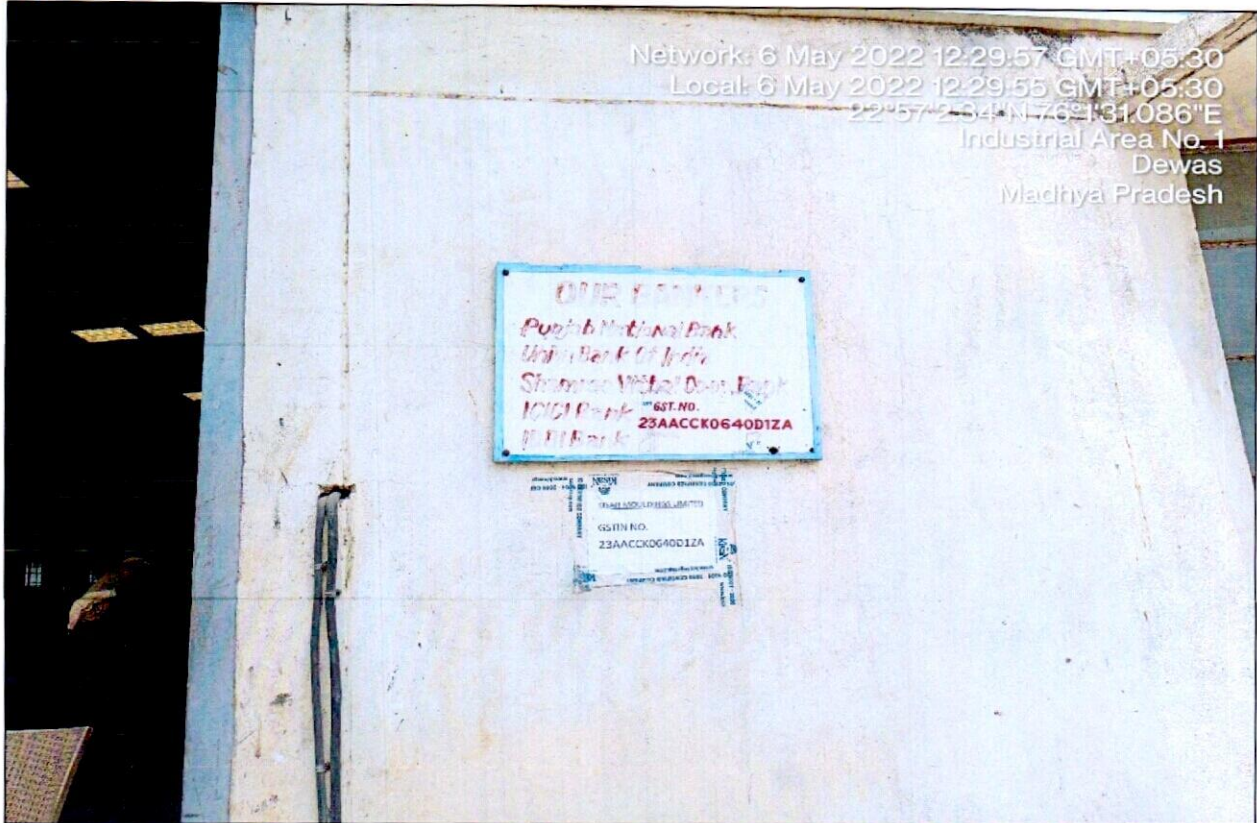 Network: 6 May 2022 12:29:57 GMT+05:30
Local: 6 May 2022 12:29:55 GMT+05:30
22°57'2.34"N 76°1'31.086"E
Industrial Area No. 1
Dewas
Madhya Pradesh
OUR BANKERS
Punjab National Bank
Bank Of India
Shamrao Vithal Bank
ICICI Bank
GST. NO.
23AACCK0640D1ZA
Bank
MOULDINGS LIMITED
GSTIN NO.
23AACCK0640D1ZA